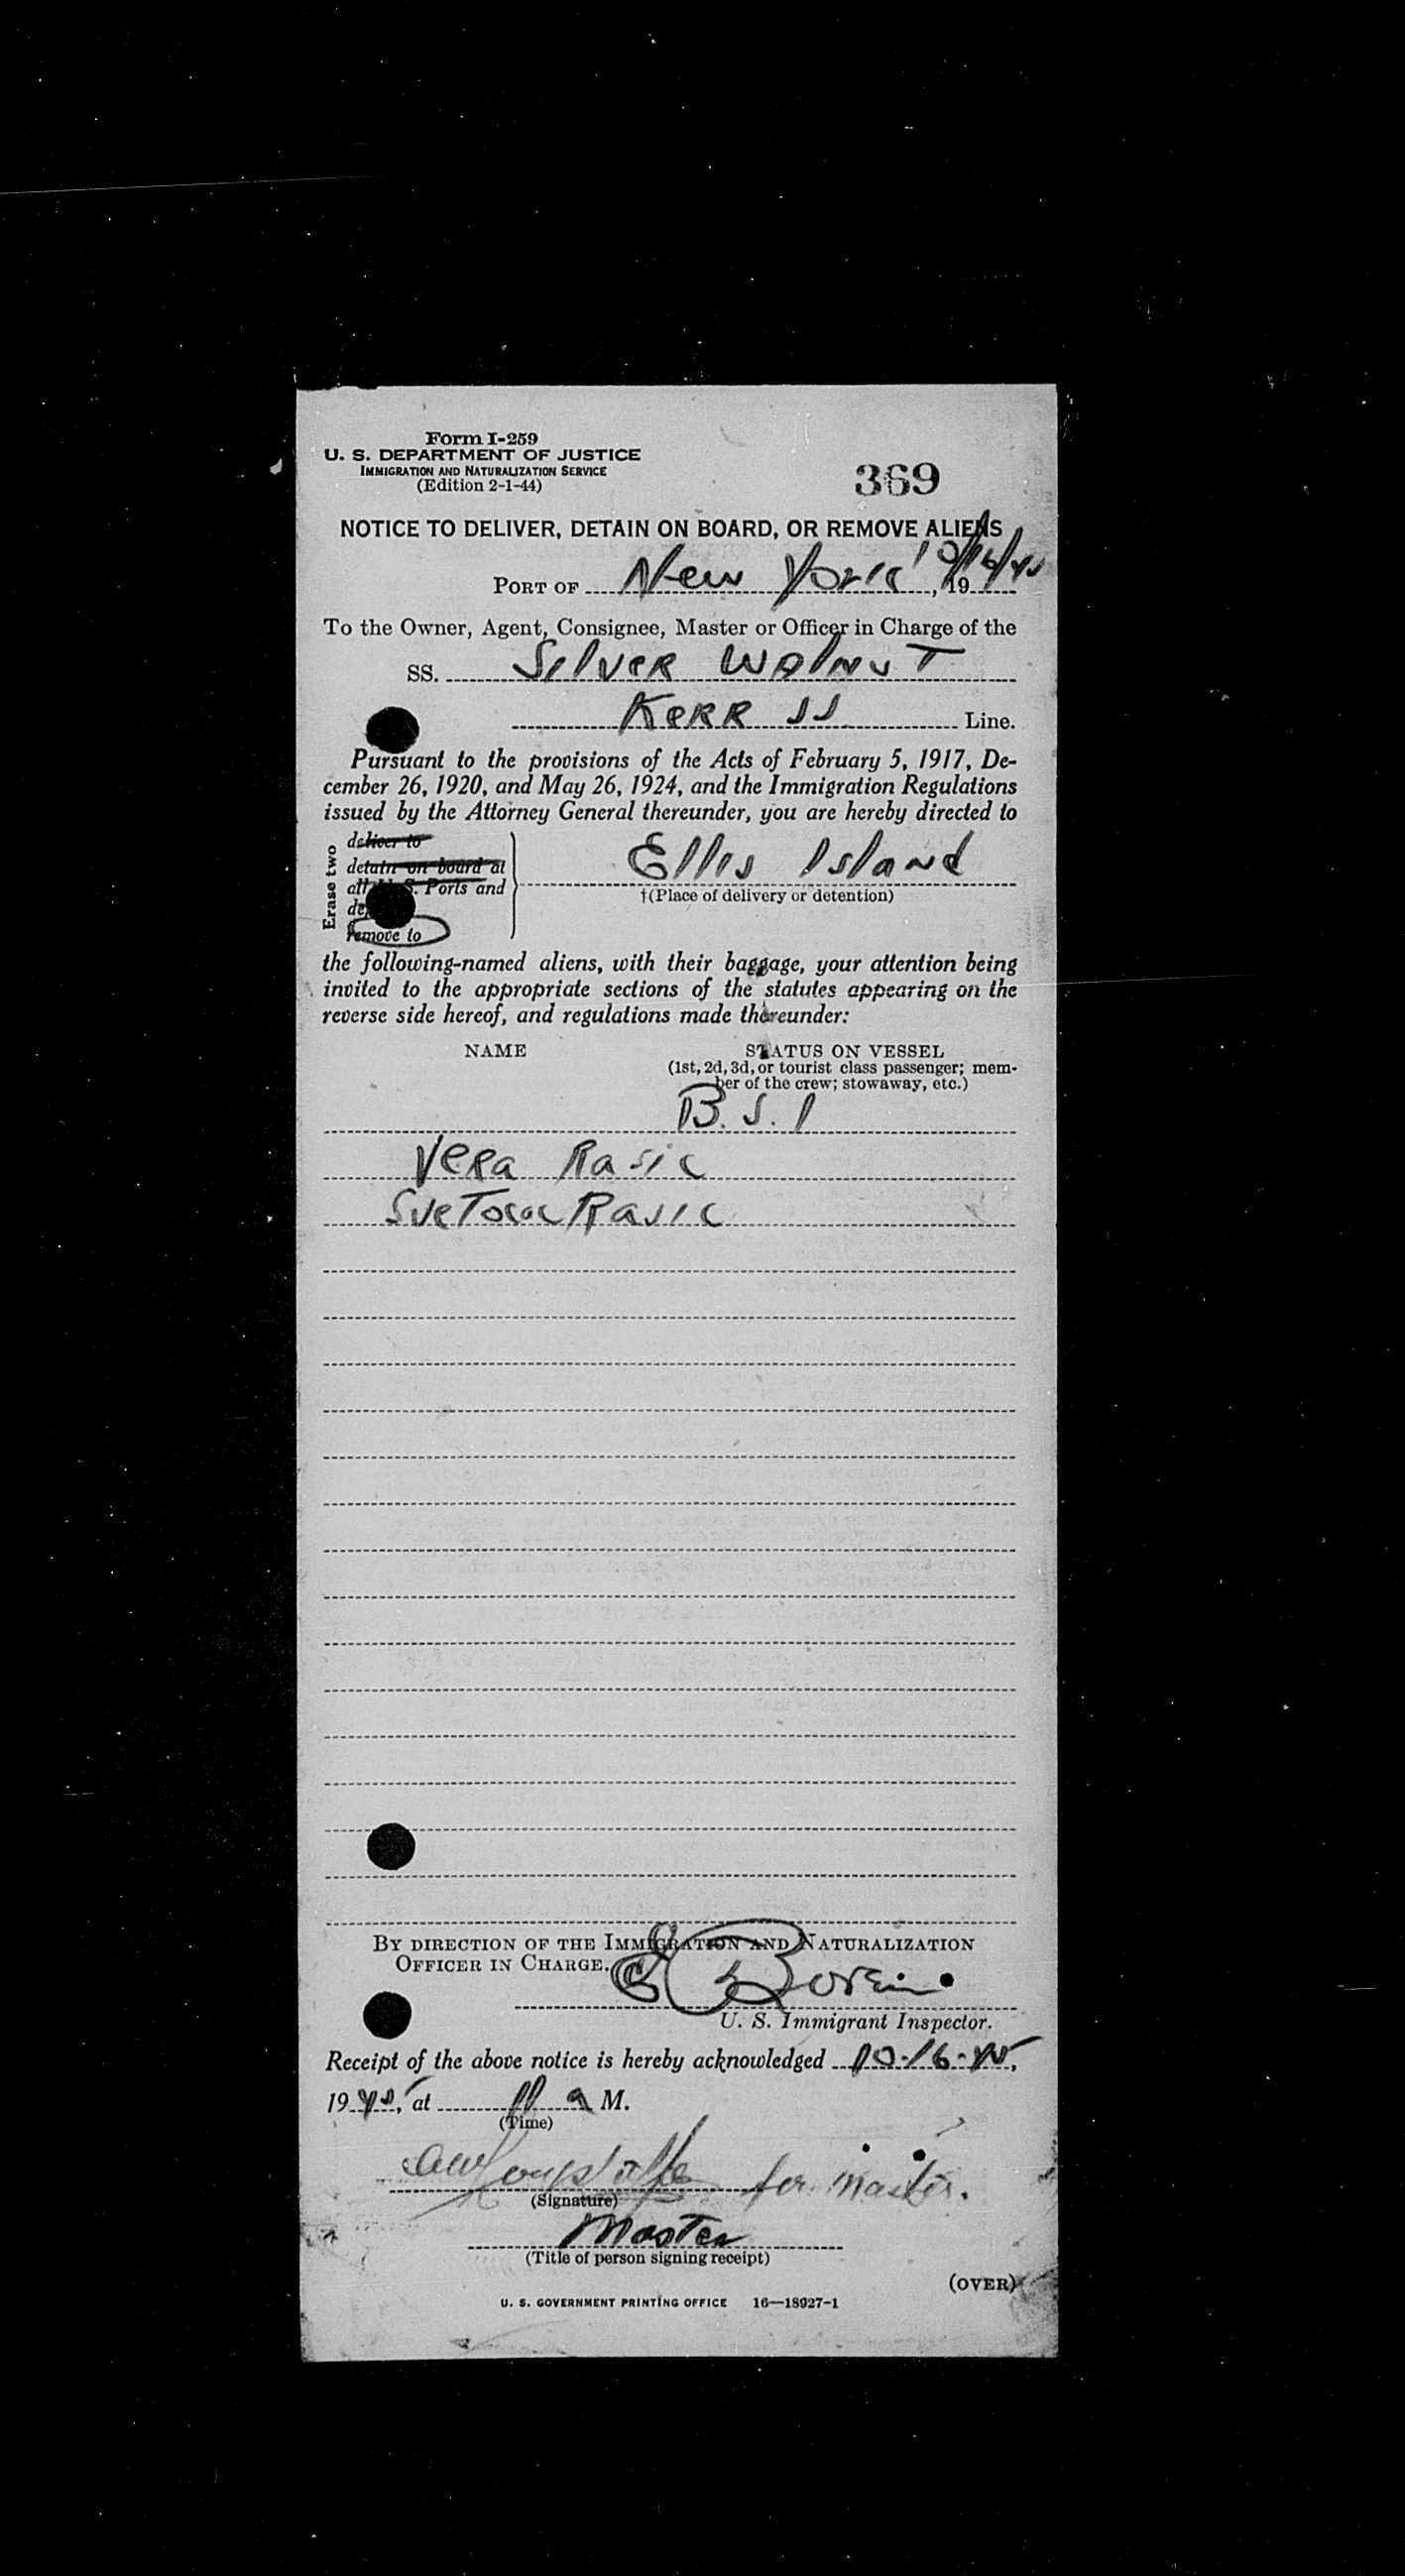 Form I-259
U. S. DEPARTMENT OF JUSTICE
IMMIGRATION AND NATURALIZATION SERVICE
(Edition 2-1-44)
369
NOTICE TO DELIVER, DETAIN ON BOARD, OR REMOVE ALIENS
PORT OF New York, 19 10/16/45
To the Owner, Agent, Consignee, Master or Officer in Charge of the
SS. Silver Walnut
Kerr SS Line.
Pursuant to the provisions of the Acts of February 5, 1917, De-
cember 26, 1920, and May 26, 1924, and the Immigration Regulations
issued by the Attorney General thereunder, you are hereby directed to
Erase two
deliver to
detain on board at
all U. S. Ports and
remove to
Ellis Island
†(Place of delivery or detention)
the following-named aliens, with their baggage, your attention being
invited to the appropriate sections of the statutes appearing on the
reverse side hereof, and regulations made thereunder:
NAME
STATUS ON VESSEL
(1st, 2d, 3d, or tourist class passenger; mem-
ber of the crew; stowaway, etc.)
B. S. I
Vera Rasic
Rasic
BY DIRECTION OF THE IMMIGRATION AND NATURALIZATION
OFFICER IN CHARGE.
U. S. Immigrant Inspector.
Receipt of the above notice is hereby acknowledged 10-16-45,
1945, at 11 a M.
(Time)
for Master.
(Signature)
Master
(Title of person signing receipt)
(OVER)
U. S. GOVERNMENT PRINTING OFFICE 16—18927-1